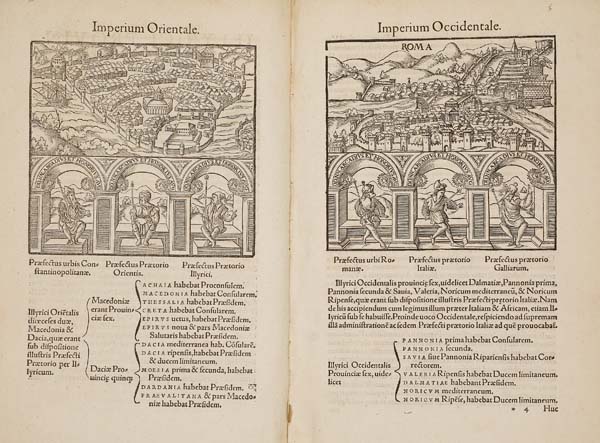 Imperium Orientale.
Præfectus urbis Con-
stantinopolitanæ.
Præfectus Prætorio
Orientis.
Præfectus Prætorio
Illyrici.
Illyrici Oriẽtalis
diœceses duæ,
Macedonia &
Dacia, quæ erant
sub dispositione
illustris Præfecti
Prætorio per Il-
lyricum.
Macedoniæ
erant Provin-
ciæ sex.
ACHAIA habebat Proconsulem.
MACEDONIA habebat Consularem.
THESSALIA habebat Præsidem.
CRETA habebat Consularem.
EPIRVS uetus, habebat Præsidem.
EPIRVS noua & pars Macedoniæ
Salutaris habebat Præsidem.
Daciæ Pro-
uincię quinq;
DACIA mediterranea hab. Cõsularẽ.
DACIA ripensis, habebat Præsidem
& ducem limitaneum.
MOESIA prima & secunda, habebat
Præsidem.
DARDANIA habebat Præsidem.
PRAEVALITANA & pars Macedo-
niæ habebat Præsidem.
Imperium Occidentale.
ROMA
Præfectus urbi Ro-
manæ.
Præfectus prætorio
Italiæ.
Præfectus prætorio
Galliarum.
Illyrici Occidentalis prouincię sex, uidelicet Dalmatiæ, Pannonia prima,
Pannonia secunda & Sauia, Valeria, Noricum mediterraneũ, & Noricum
Ripense, quæ erant sub dispositione illustris Præfecti prętorio Italiæ. Nam
de his accipiendum cum legimus illum præter Italiam & Africam, etiam Il-
lyricũ
Illyrici Occidentalis
Prouinciæ sex, uide-
licet
PANNONIA prima habebat Consularem.
PANNONIA secunda.
SAVIA siue Pannonia Ripariensis habebat Cor-
rectorem.
VALERIA Ripensis habebat Ducem limitaneum.
DALMATIAE habebant Præsidem.
NORICVM mediterraneum.
NORICVM Ripẽse, habebat Ducem limitaneum.
* 4 Huc